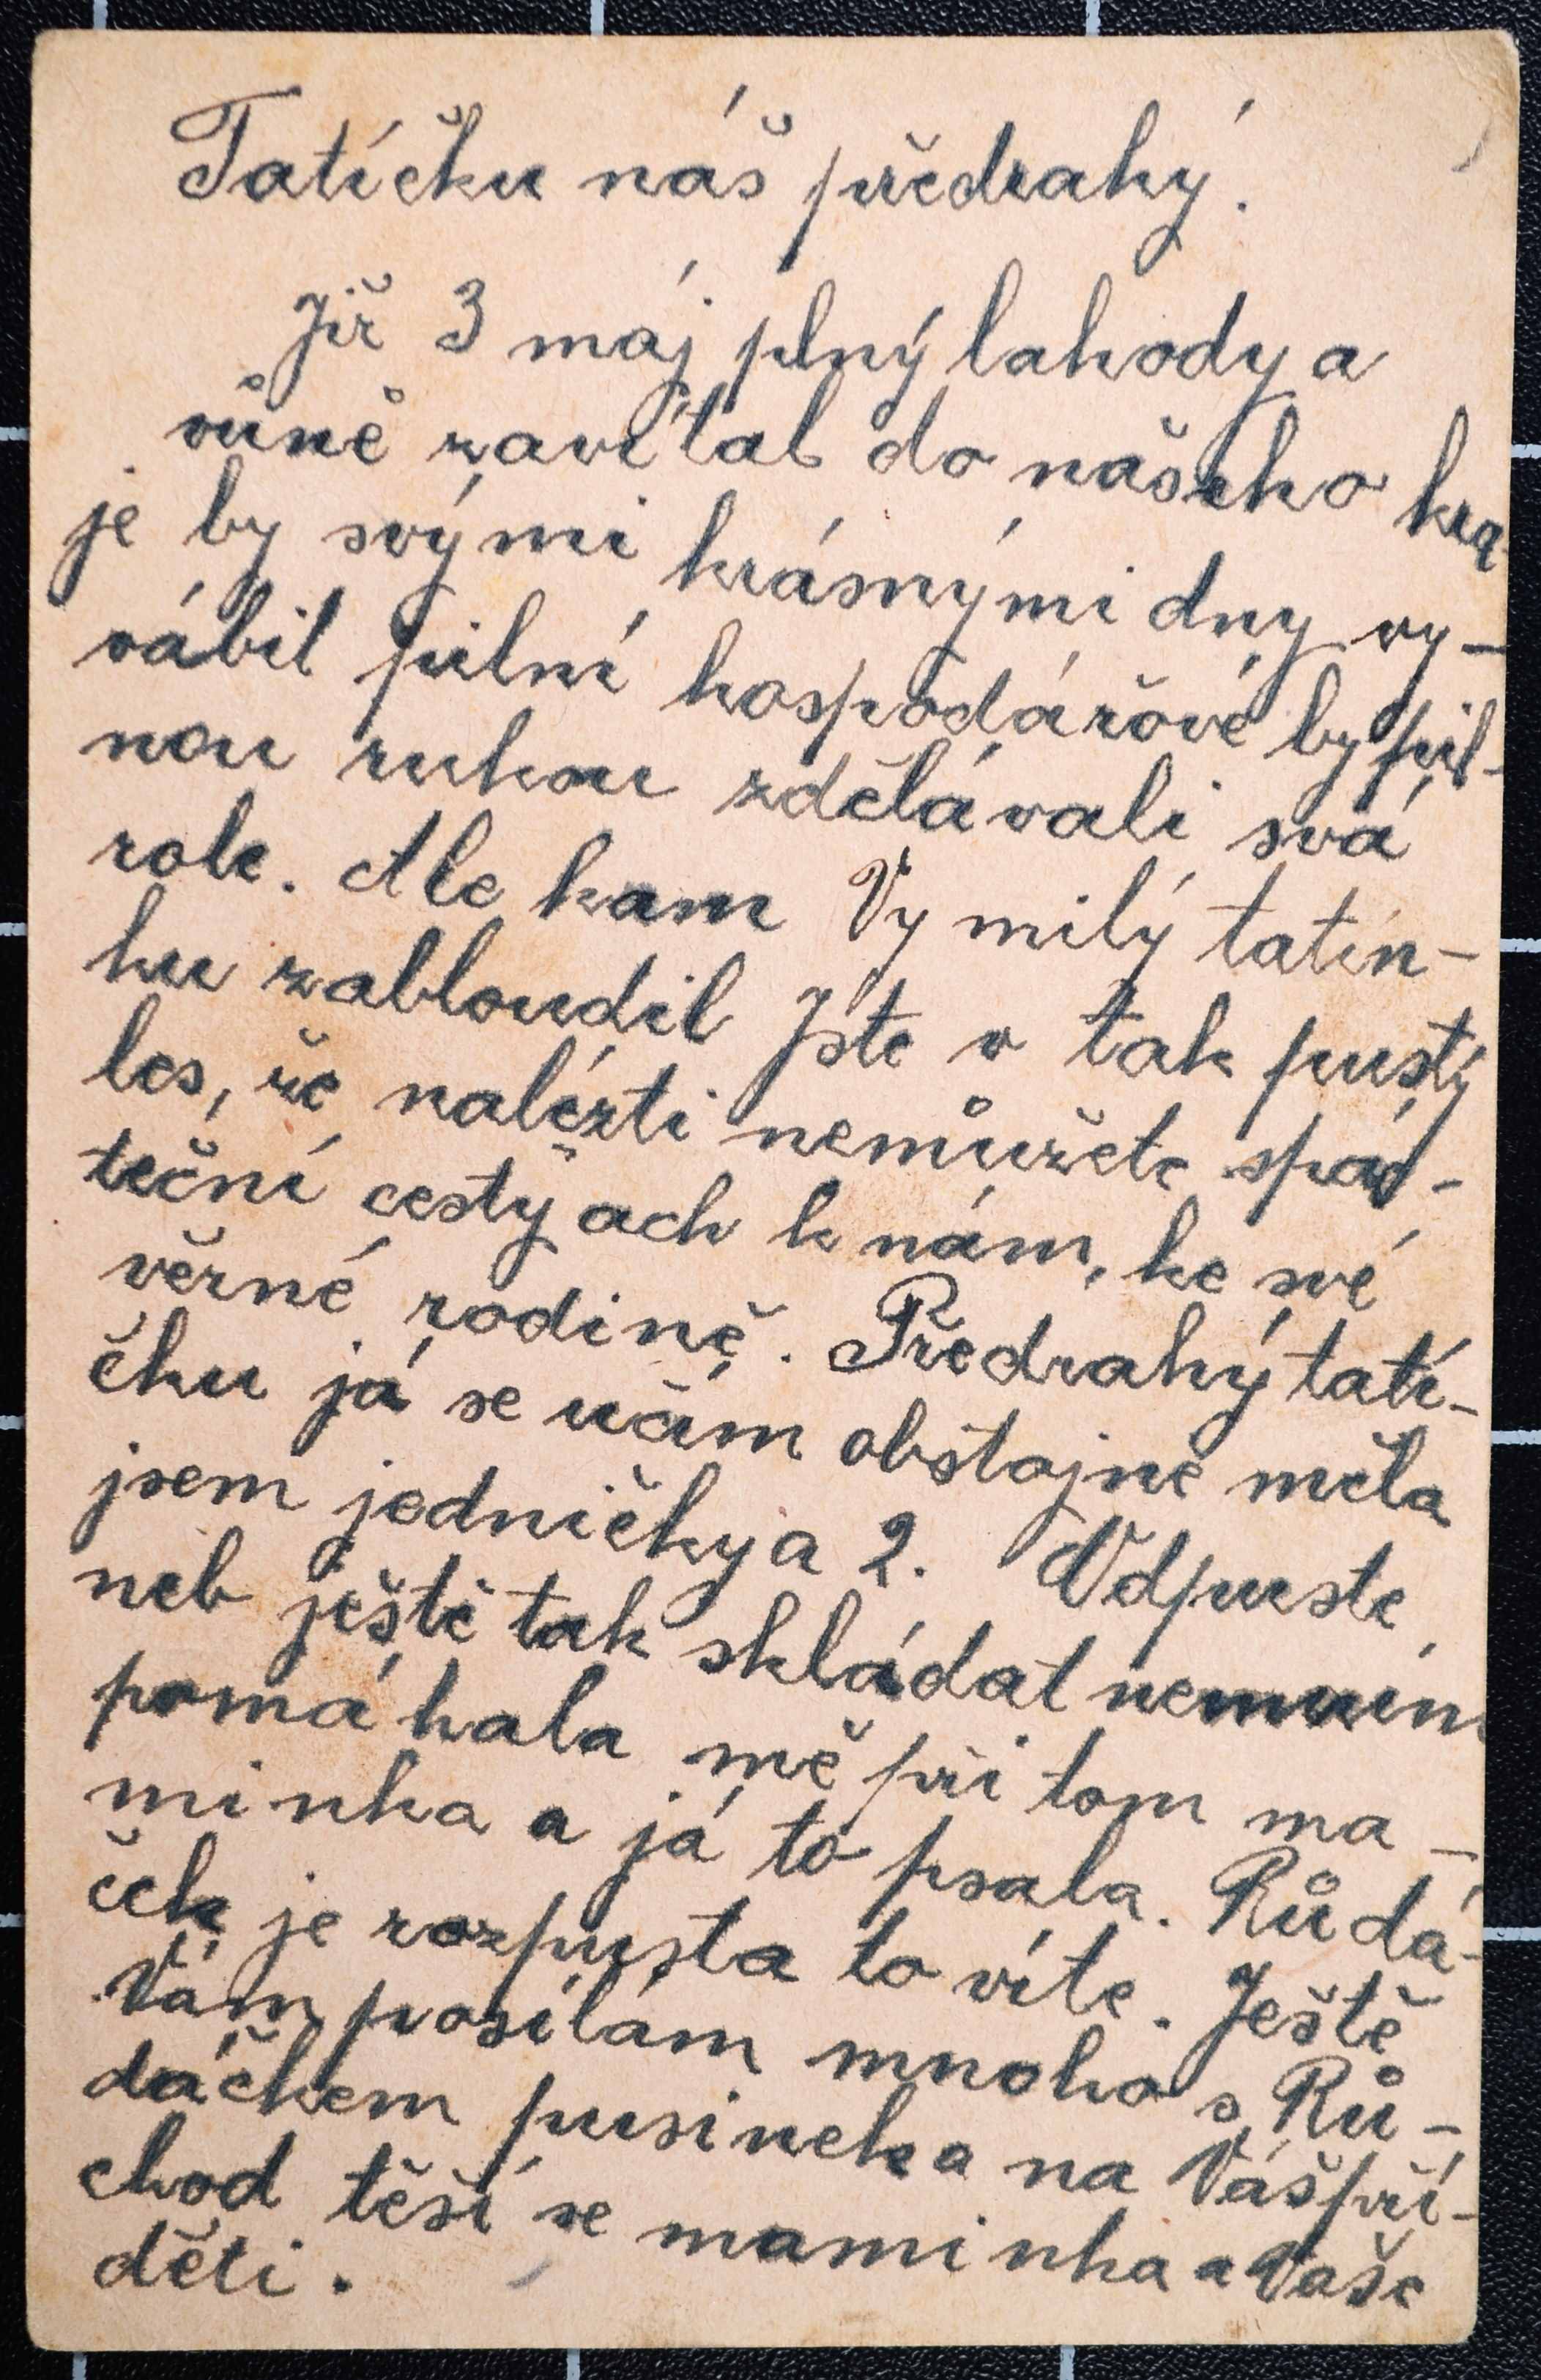 Tatíčku náš předrahý.
Již 3 máj plný lahody a
vůně zavítal do našeho kra-
je by svými krásnými dny vy-
vábil pilní hospodářové by pil-
nou rukou zdělávali svá
role. Ale kam Vy milý tatín-
ku zabloudil Jste v tak pustý
les, že nalézti nemůžete spá-
teční cesty ach k nám, ke své
věrné rodině. Předrahý tatí-
čku já se učím obstojně měla
jsem jedničky a 2. Odpuste
neb ještě tak skládat neumím
pomáhala mě při tom ma-
minka a já to psala. Růdá-
ček je rozpusta to víte. Ještě
Vám posílám mnoho s Rů-
dáčkem pusinek a na Váš pří-
chod těší se maminka a Vaše
děti.